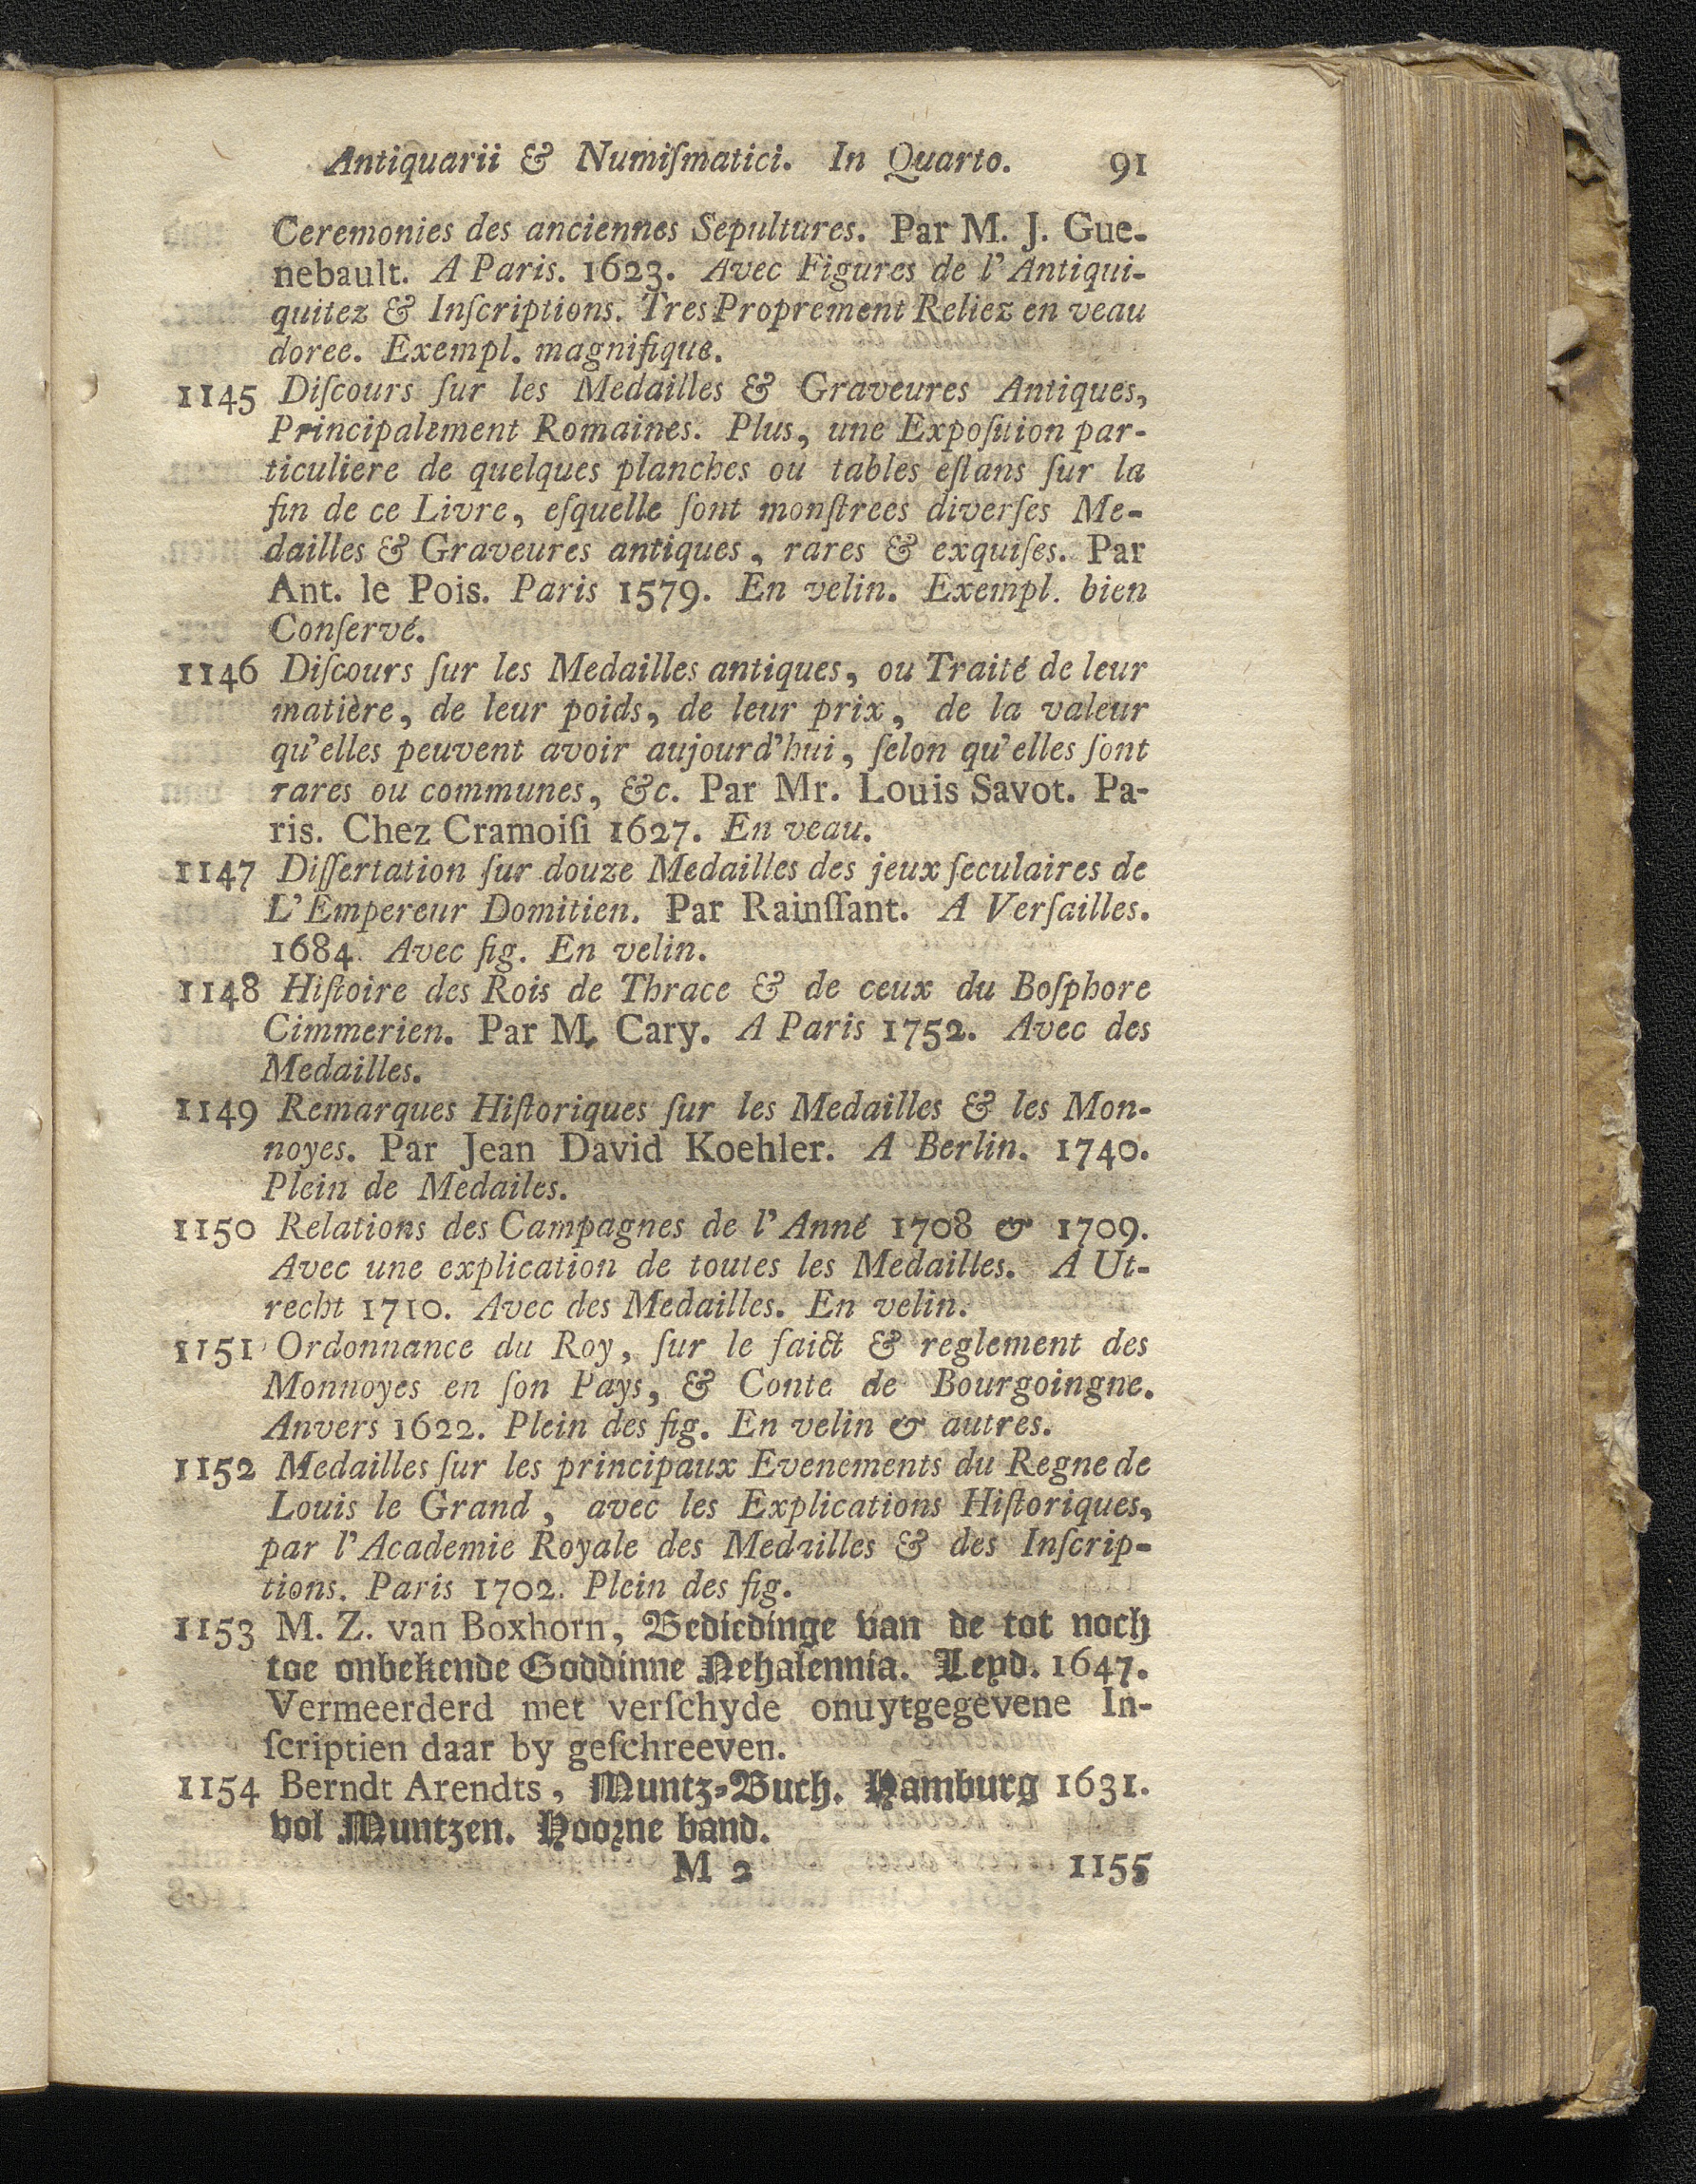 Antiquarii & Numiſmatici. In Quarto. 91
Ceremonies des anciennes Sepultures. Par M. J. Gue-
nebault. A Paris. 1623. Avec Figures de l'Antiqui-
quitez & Inſcriptions. Tres Proprement Reliez en veau
doree. Exempl. magnifique.
1145 Diſcours ſur les Medailles & Graveures Antiques,
Principalement Romaines. Plus, une Expoſition par-
ticuliere de quelques planches ou tables eſtans ſur la
fin de ce Livre, eſquelle ſont monſtrees diverſes Me-
dailles & Graveures antiques, rares & exquiſes. Par
Ant. le Pois. Paris 1579. En velin. Exempl. bien
Conſervé.
1146 Diſcours ſur les Medailles antiques, ou Traité de leur
matière, de leur poids, de leur prix, de la valeur
qu'elles peuvent avoir aujourd'hui, ſelon qu'elles ſont
rares ou communes, &c. Par Mr. Louis Savot. Pa-
ris. Chez Cramoiſi 1627. En veau.
1147 Diſſertation ſur douze Medailles des jeux ſeculaires de
L'Empereur Domitien. Par Rainſſant. A Verſailles.
1684. Avec fig. En velin.
1148 Hiſtoire des Rois de Thrace & de ceux du Boſphore
Cimmerien. Par M. Cary. A Paris 1752. Avec des
Medailles.
1149 Remarques Hiſtoriques ſur les Medailles & les Mon-
noyes. Par Jean David Koehler. A Berlin. 1740.
Plein de Medailes.
1150 Relations des Campagnes de l'Anné 1708 & 1709.
Avec une explication de toutes les Medailles. A Ut-
recht 1710. Avec des Medailles. En velin.
1151 Ordonnance du Roy, ſur le faict & reglement des
Monnoyes en ſon Pays, & Conte de Bourgoingne.
Anvers 1622. Plein des fig. En velin & autres.
1152 Medailles ſur les principaux Evenements du Regne de
Louis le Grand, avec les Explications Hiſtoriques,
par l'Academie Royale des Medailles & des Inſcrip-
tions. Paris 1702. Plein des fig.
1153 M. Z. van Boxhorn, Bediedinge van de tot noch
toe onbekende Goddinne Nehalennia. Leyd. 1647.
Vermeerderd met verſchyde onuytgegevene In-
ſcriptien daar by geſchreeven.
1154 Berndt Arendts, Muntz-Buch. Hamburg 1631.
vol Muntzen. Hoorne band.
M 2 1155